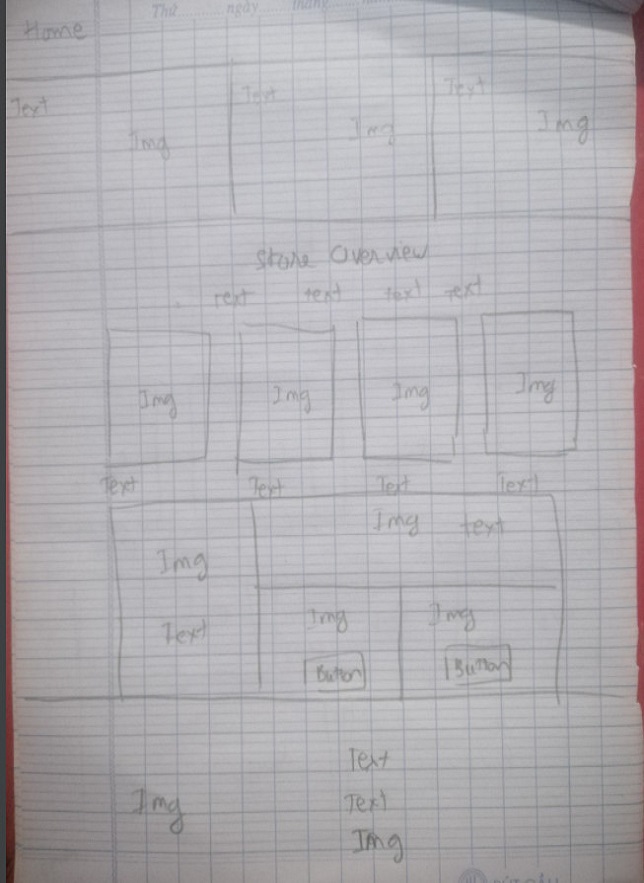 Thứ ngày tháng
Home
Text Text Text
Img Img Img
Store Overview
text text text text
Img Img Img Img
Text Text Text Text
Img text
Img
Img Img
Text
Button Button
Text
Img Text
Img